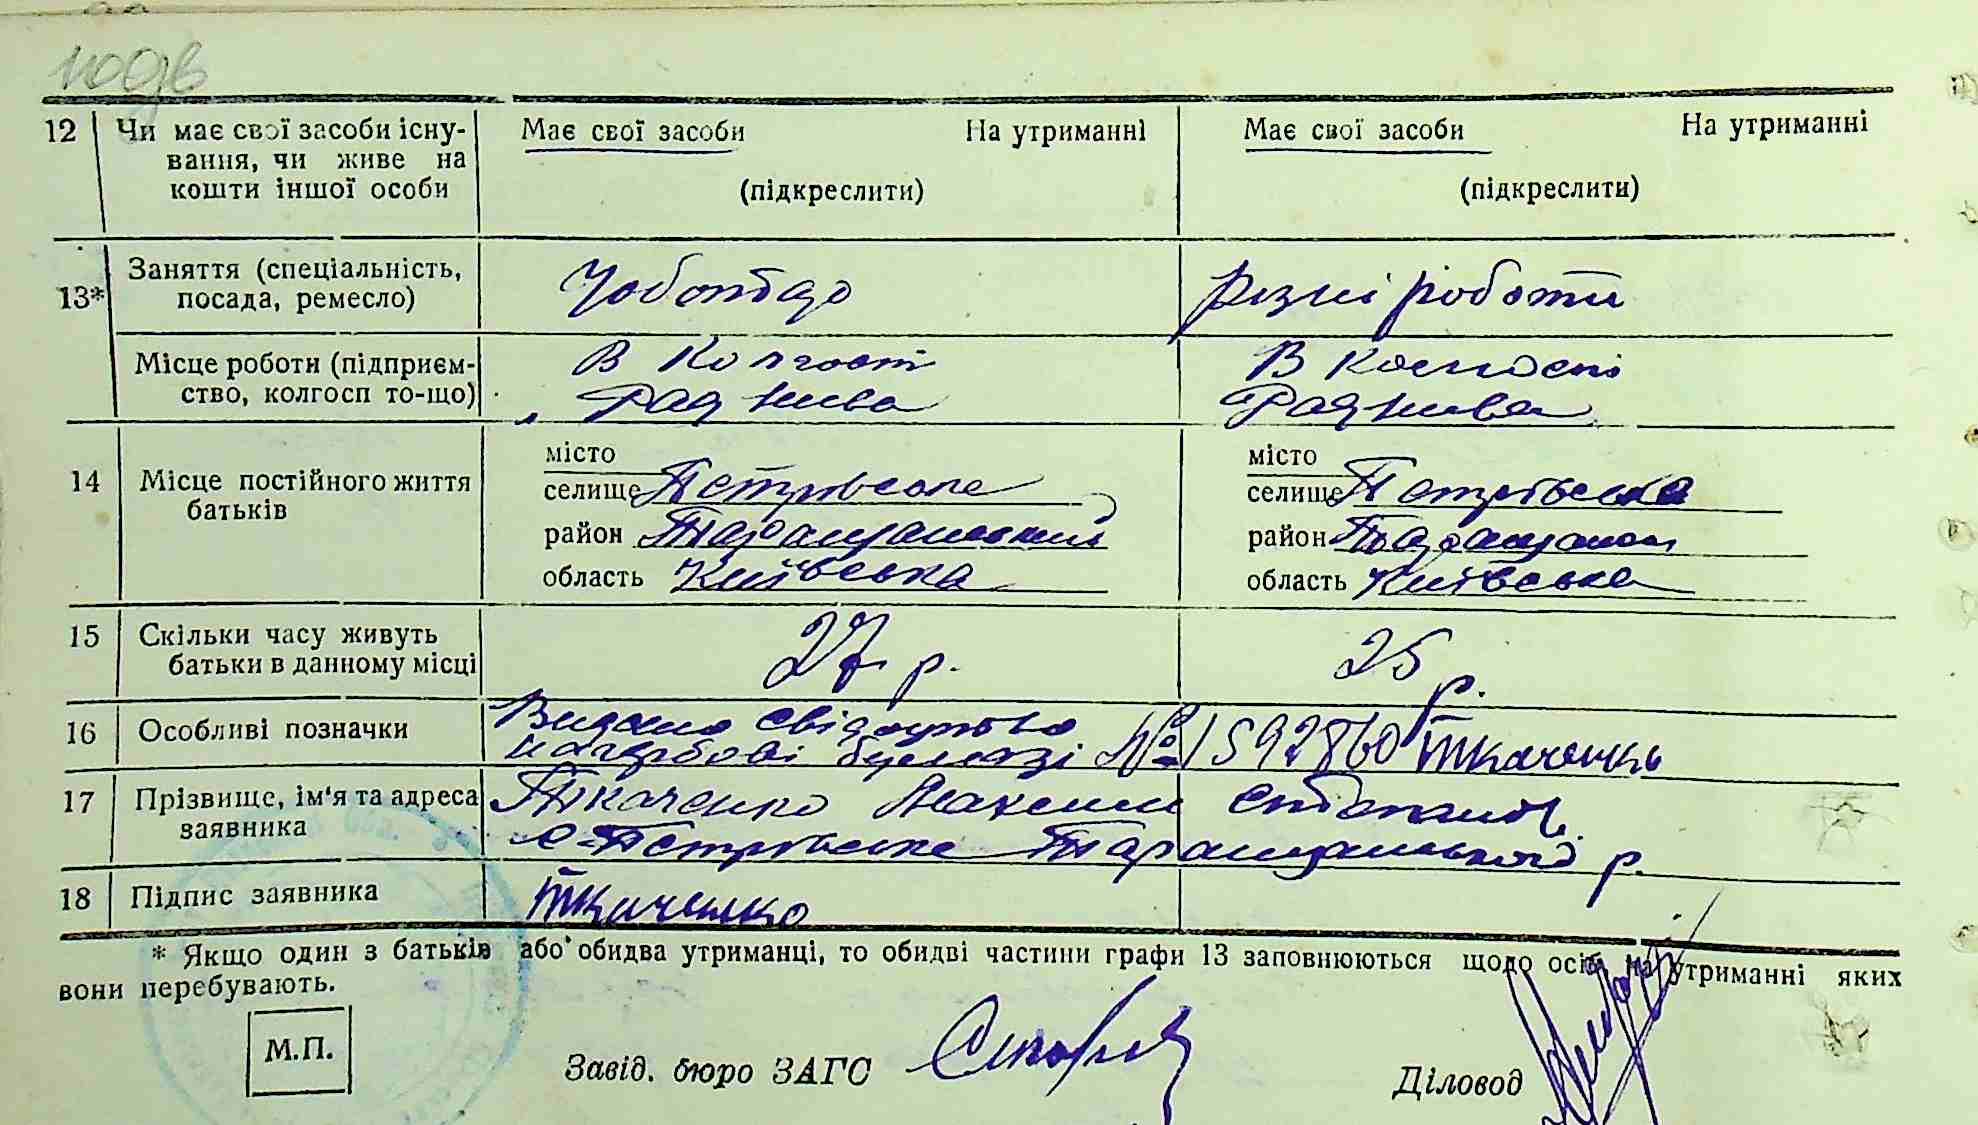 12 Чи має свої засоби існу- Має свої засоби На утриманні Має свої засоби На утриманні
вання, чи живе на
кошти іншої особи (підкреслити) (підкреслити)
13* Заняття (спеціальність, посада, ремесло) Різні роботи
Місце роботи (підприєм- В Колгосп В Колгоспі
ство, колгосп то-що) Рад нива Рад нива
14 Місце постійного життя батьків
місто місто
селище Петрівське селище Петрівська
район Таращанський район Таращан
область Київська область Київська
15 Скільки часу живуть 27 р. 25 р.
батьки в данному місці
16 Особливі позначки Видано свідоцтво
на гербові бумазі № 1592860 Ткаченко
17 Прізвище, ім'я та адреса Ткаченко Максим Степанов.
заявника с. Петрівське Таращанського р.
18 Підпис заявника Ткаченко
* Якщо один з батьків або обидва утриманці, то обидві частини графи 13 заповнюються щодо осіб на утриманні яких
вони перебувають.
М.П.
Завід. бюро ЗАГС Діловод